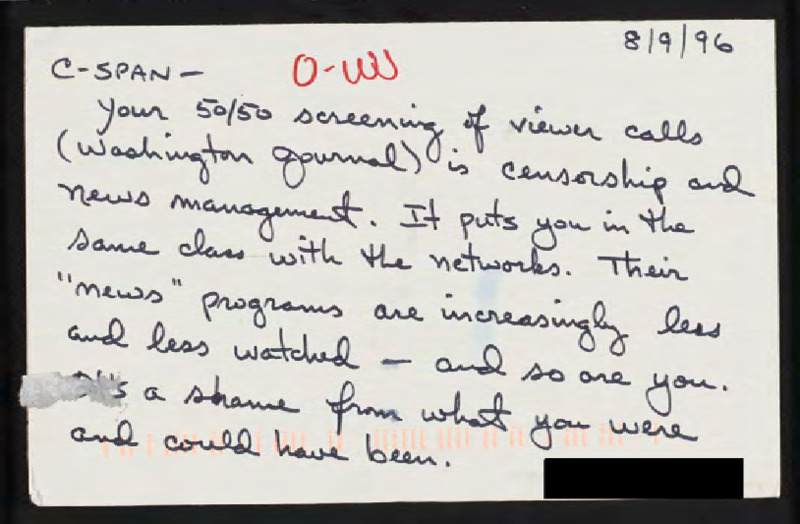 8/9/96
C-SPAN —
Your 50/50 screening of viewer calls
(Washington Journal) is censorship and
news management. It puts you in the
same class with the networks. Their
"news" programs are increasingly less
and less watched — and so are you.
It's a shame from what you were
and could have been.